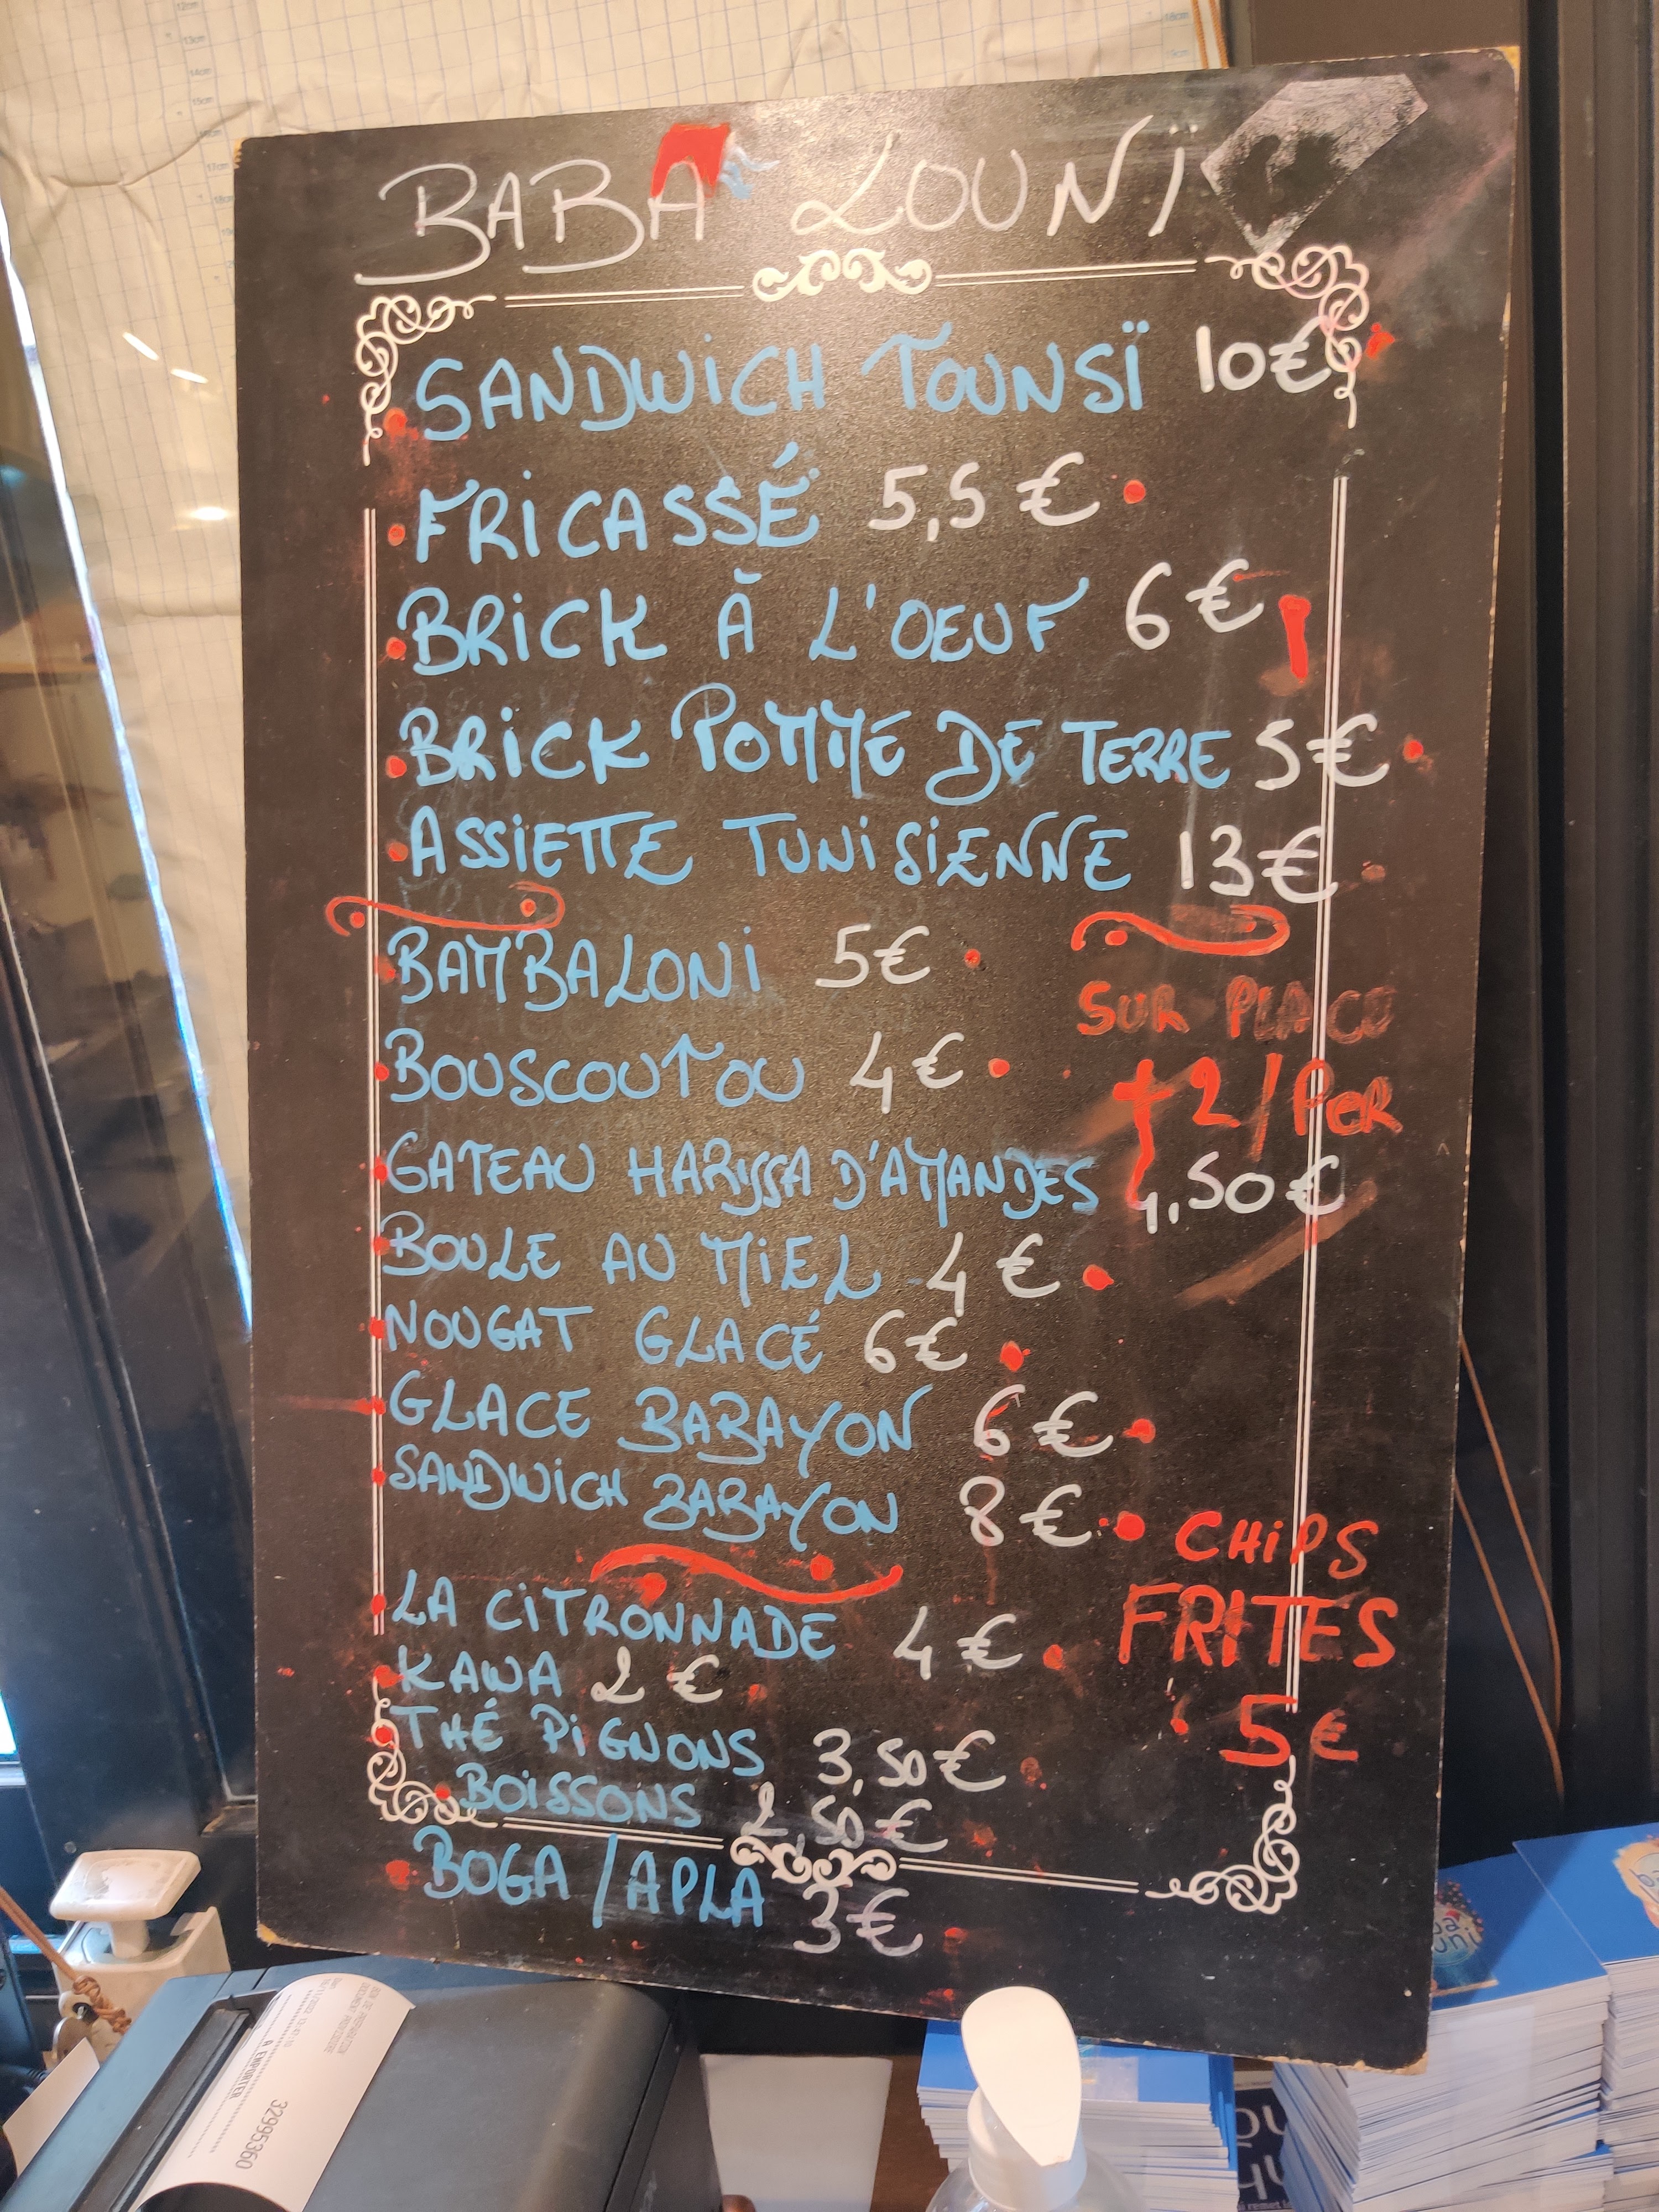 BABA LOUNÏ
SANDWICH TOUNSÏ 10€
FRICASSÉ 5,5 €
BRICK À L'OEUF 6€
BRICK POMME DE TERRE 5€
ASSIETTE TUNISIENNE 13€
BAMBALONI 5€
SUR PLACE
+2/PER
BOUSCOUTOU 4€
GATEAU HARISSA D'AMANDES 4,50€
BOULE AU MIEL 4€
NOUGAT GLACÉ 6€
GLACE BABAYON 6€
SANDWICH BABAYON 8€
CHIPS
FRITES
5€
LA CITRONNADE 4€
KAWA 2€
THÉ PIGNONS 3,50€
BOISSONS 2,50€
BOGA/APLA 3€
A EMPORTER
32995360